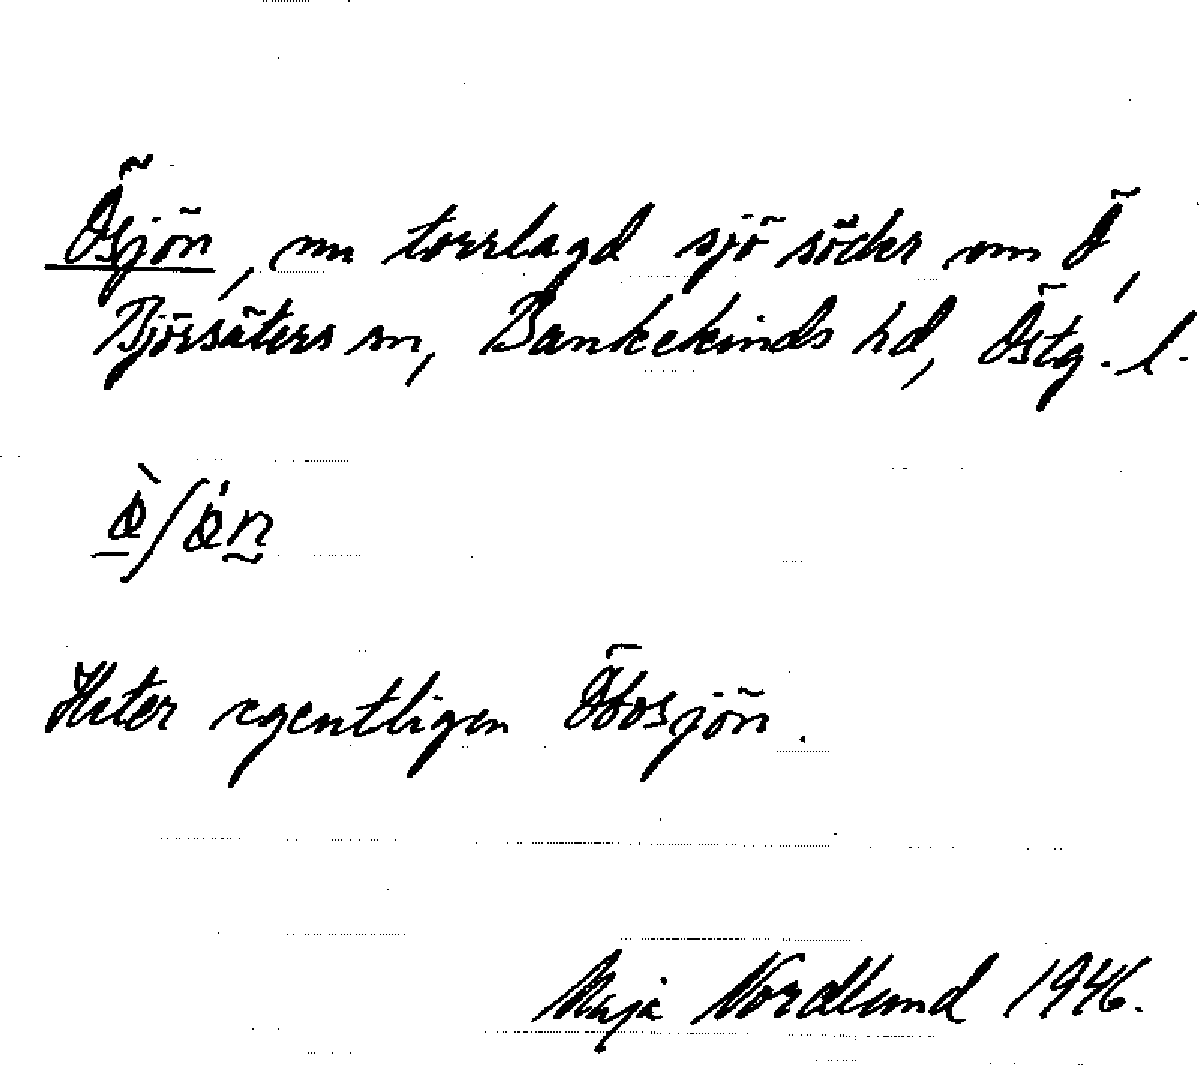 Ösjön, nu torrlagd sjö söder om Ö,
Björsäters sn, Bankekinds hd, Östg. l.
Heter egentligen Öbosjön.
Maja Nordlund 1946.